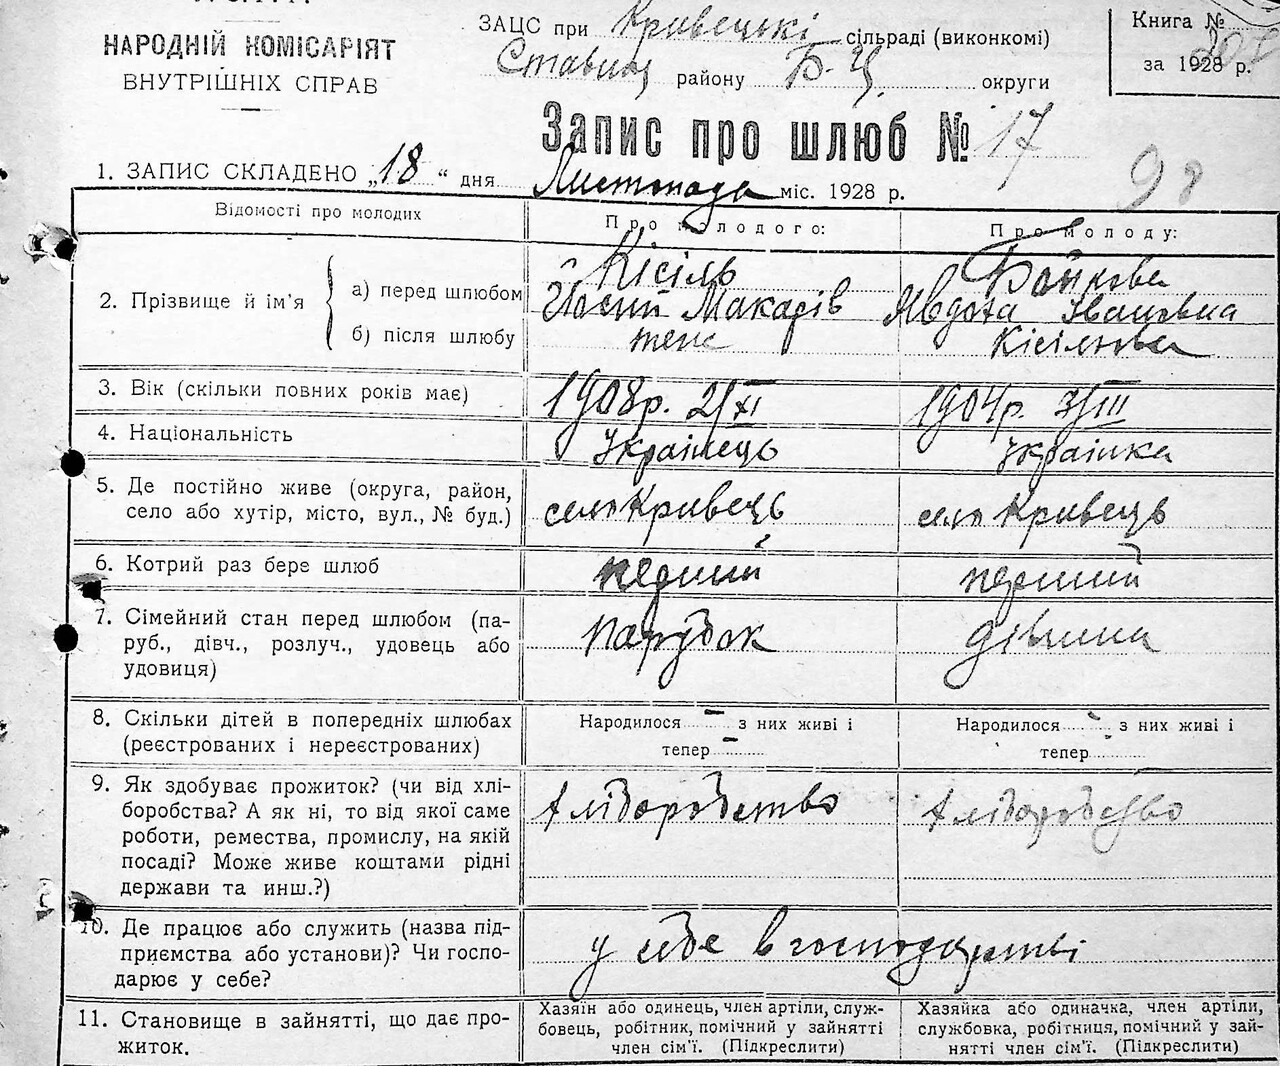 НАРОДНІЙ КОМІСАРІЯТ
ВНУТРІШНІХ СПРАВ
ЗАЦС при Кривецькі сільраді (виконкомі)
Ставищ району Б-Ц. округи
Книга №
за 1928 р.
Запис про шлюб № 17
98
1. ЗАПИС СКЛАДЕНО „18“ дня Листопада міс. 1928 р.
Відомості про молодих
Про молодого:
Про молоду:
2. Прізвище й ім'я
а) перед шлюбом
б) після шлюбу
Кісіль
Йосип Макарів
теж
Бойкова
Явдоха Івановна
Кісільова
3. Вік (скільки повних років має)
1908р. 21/XI
1904р. 3/III
4. Національність
Українець
Українка
5. Де постійно живе (округа, район,
село або хутір, місто, вул., № буд.)
село Кривець
село Кривець
6. Котрий раз бере шлюб
первий
перший
7. Сімейний стан перед шлюбом (па-
руб., дівч., розлуч., удовець або
удовиця)
парубок
дівчина
8. Скільки дітей в попередніх шлюбах
(реєстрованих і нереєстрованих)
Народилося - з них живі і
тепер -
Народилося - з них живі і
тепер -
9. Як здобуває прожиток? (чи від хлі-
боробства? А як ні, то від якої саме
роботи, ремества, промислу, на якій
посаді? Може живе коштами рідні
держави та инш.?)
Хліборобство
Хліборобство
10. Де працює або служить (назва під-
приємства або установи)? Чи госпо-
дарює у себе?
у себе в господарстві
11. Становище в зайнятті, що дає про-
житок.
Хазяїн або одинець, член артілі, служ-
бовець, робітник, помічний у зайнятті
член сім'ї. (Підкреслити)
Хазяйка або одиначка, член артілі,
службовка, робітниця, помічний у зай-
нятті член сім'ї. (Підкреслити)